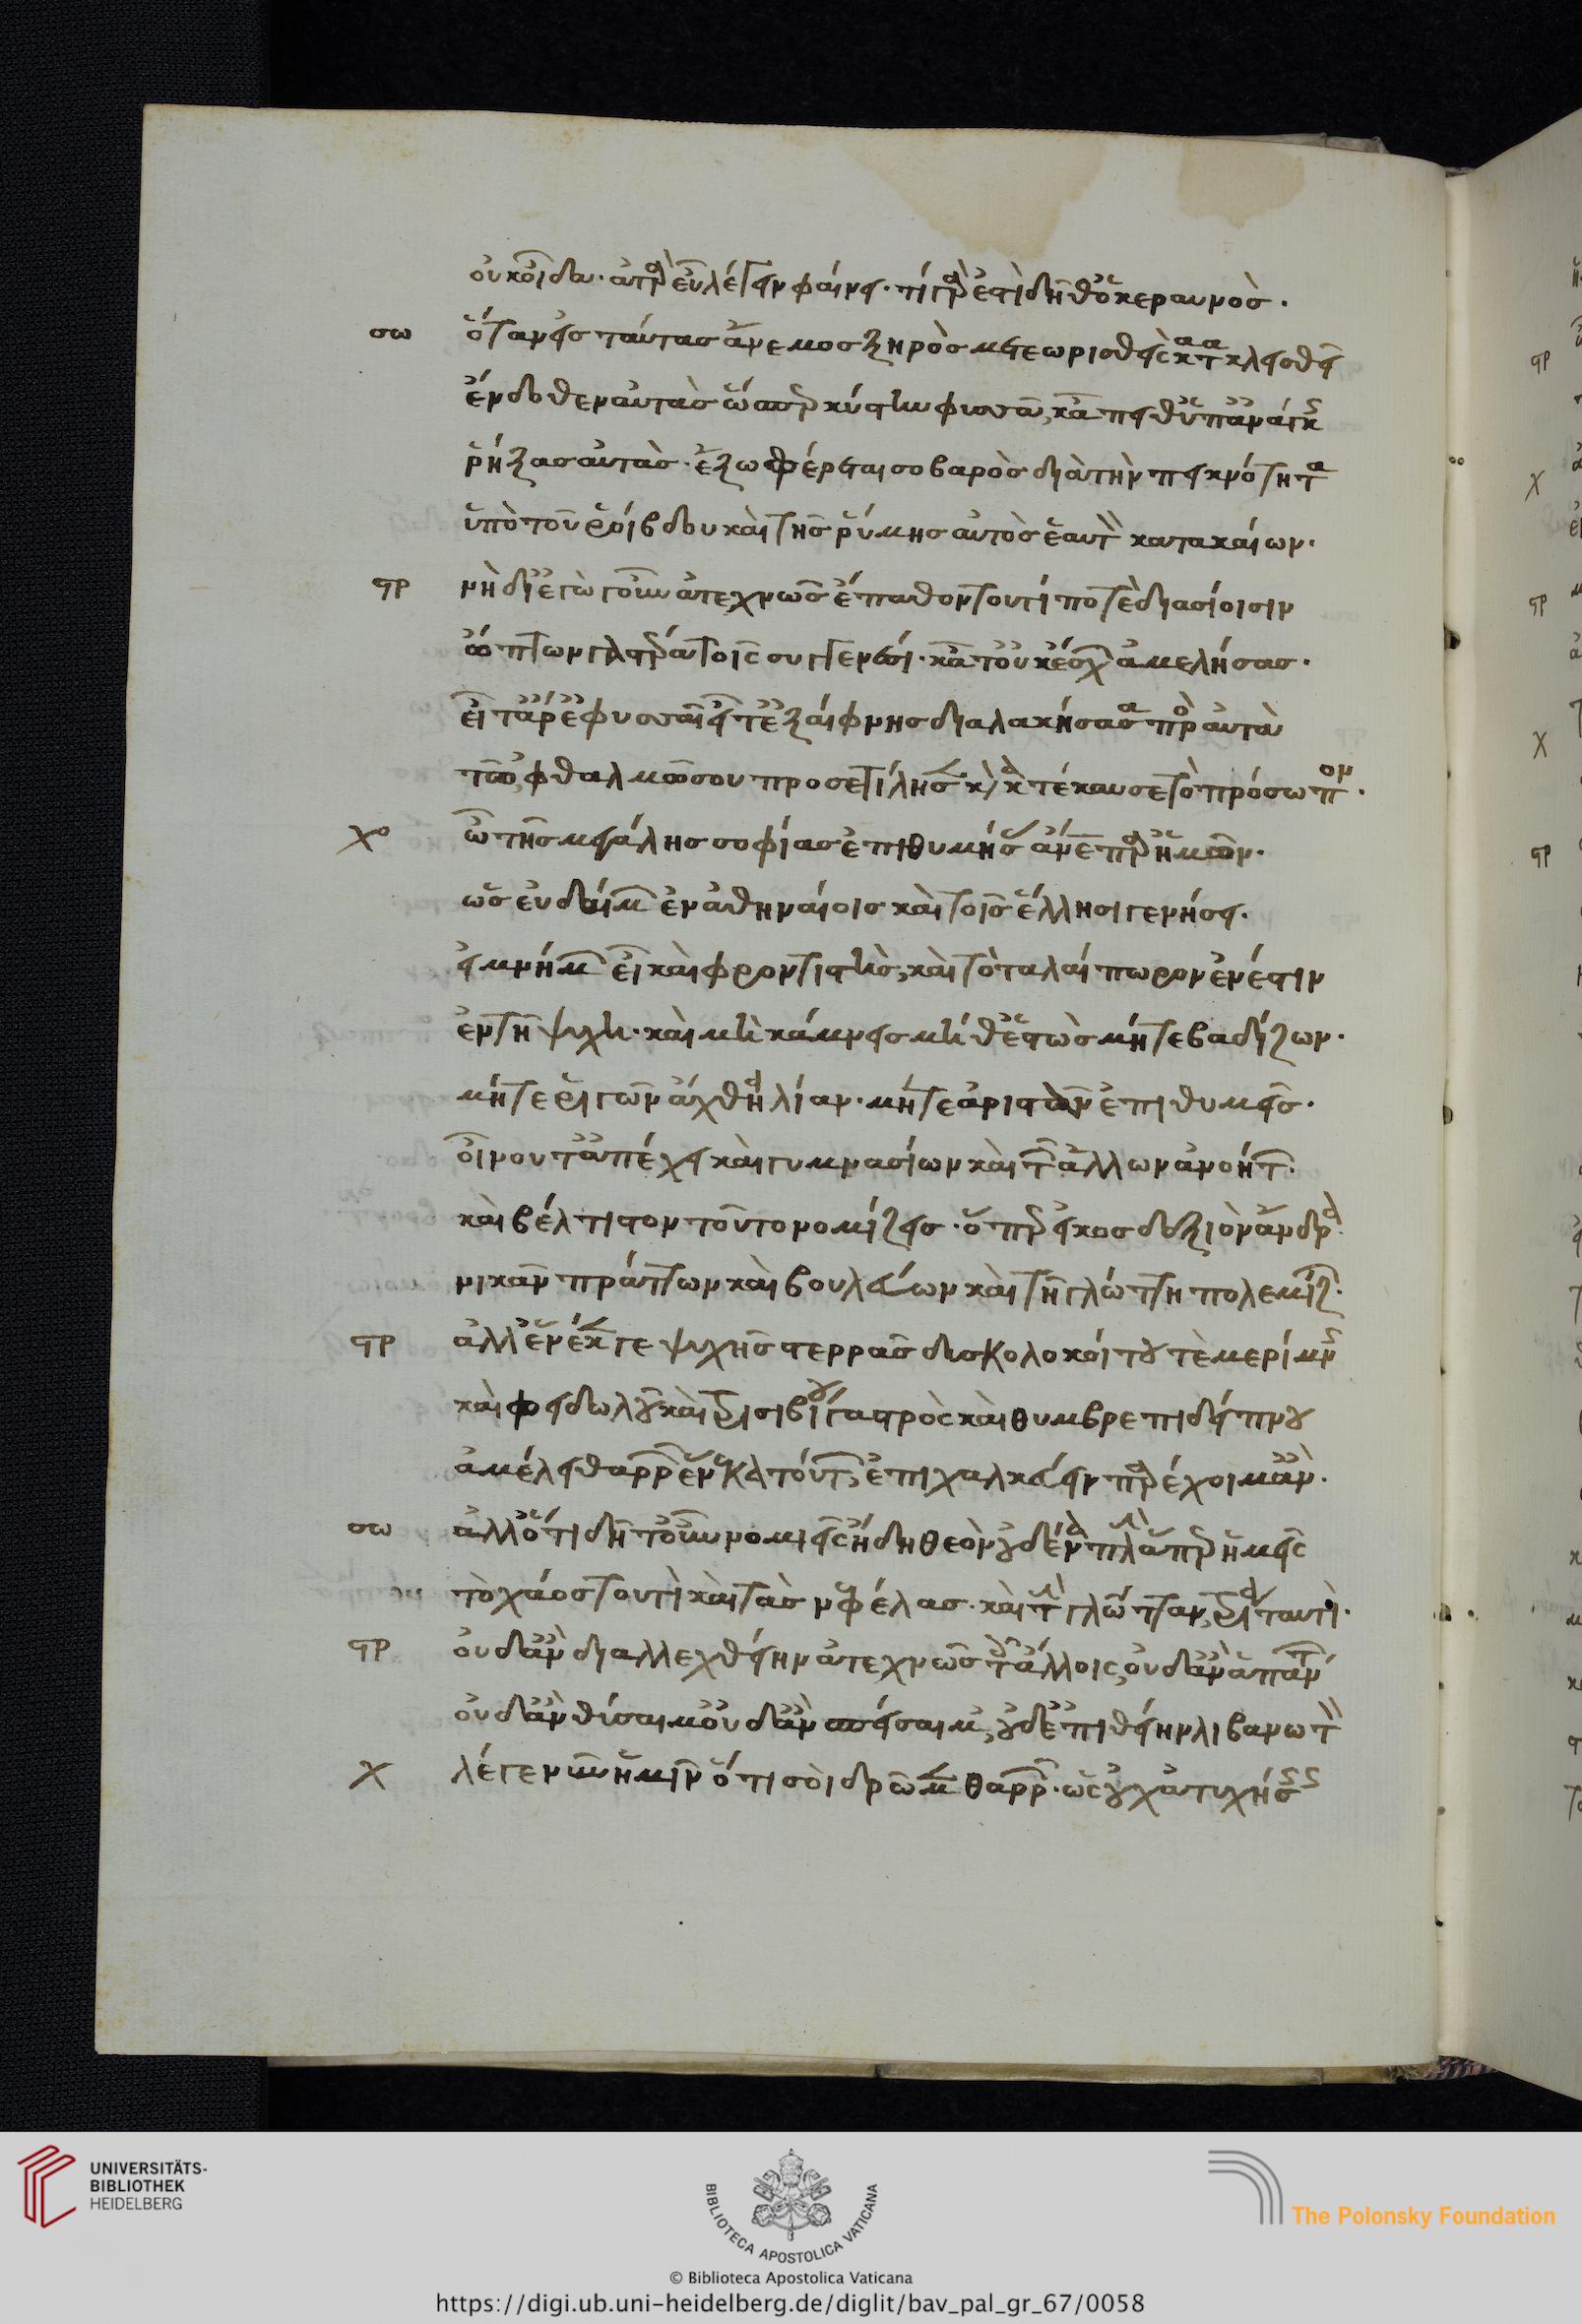 οὐκ οἶδα· ἀτὰρ εὖ λέγειν φαίνει· τί γάρ ἐστι δῆθ' ὁ κεραυνός·
σω ὅταν εἰς ταύτας ἄνεμος ξηρὸς μετεωρισθεὶς κατακλεισθῇ
ἔνδοθεν αὐτὰς ὥσπερ κύστιν φυσᾷ, κἄπειθ' ὑπ' ἀνάγκης
ῥήξας αὐτὰς· ἔξω φέρεται σοβαρὸς διὰ τὴν πυκνότητα
ὑπὸ τοῦ ῥοίβδου καὶ τῆς ῥύμης αὐτὸς ἑαυτὸν κατακαίων·
στρ νὴ δί' ἐγὼ γοῦν ἀτεχνῶς ἔπαθον τουτί ποτε διασίοισιν
ὀπτῶν γαστέρα τοῖς συγγενέσι· κᾆτ' οὐκ ἔσχων ἀμελήσας·
εἶτ' ἄρ' ἐφυσᾶτ' εἶτ' ἐξαίφνης διαλακήσασα πρὸς αὐτὼ
τὠφθαλμώ μου προσετίλησεν καὶ κατέκαυσε τὸ πρόσωπον·
χο ὦ τῆς μεγάλης σοφίας ἐπιθυμήσας ἄνθρωπε παρ' ἡμῶν·
ὡς εὐδαίμων ἐν ἀθηναίοις καὶ τοῖς ἕλλησι γενήσει·
εἰ μνήμων εἶ καὶ φροντιστὴς, καὶ τὸ ταλαίπωρον ἐνέστιν
ἐν τῇ ψυχῇ· καὶ μὴ κάμνεις μήθ' ἑστὼς μήτε βαδίζων·
μήτε ῥιγῶν ἄχθῃ λίαν· μήτε ἀριστᾶν ἐπιθυμεῖς·
οἴνου τ' ἀπέχει καὶ γυμνασίων καὶ τῶν ἄλλων ἀνοήτων·
καὶ βέλτιστον τοῦτο νομίζεις· ὅπερ εἰκὸς δεξιὸν ἄνδρα·
νικᾶν πράττων καὶ βουλεύων καὶ τῇ γλώττῃ πολεμίζων·
στρ ἀλλ' ἕνεκέν γε ψυχῆς στερρᾶς δυσκολοκοίτου τε μερίμνης
καὶ φειδωλοῦ καὶ τρυσιβίου γαστρὸς καὶ θυμβρεπιδείπνου
ἀμέλει θαρρῶν ἕνεκα τούτων ἐπιχαλκεύειν παρέχοιμ' ἄν·
σω ἀλλ' ὅ τι δῆτ' οὖν νομιεῖς ἤδη θεὸν οὐδένα πλὴν ἅπερ ἡμεῖς
τὸ χάος τουτὶ καὶ τὰς νεφέλας· καὶ τὴν γλῶτταν, τρία ταυτὶ·
στρ οὐδ' ἂν διαλλεχθείην ἀτεχνῶς τοῖς ἄλλοις, οὐδ' ἂν ἀπαντῶν
οὐδ' ἂν θύσαιμ' οὐδ' ἂν σπείσαιμ', οὐδ' ἐπιθείην λιβανωτὸν
χ λέγε νῦν ἡμῖν ὅ τι σοι δρῶμεν θαρρῶν· ὡς οὐκ ἀτυχήσεις
UNIVERSITÄTS-
BIBLIOTHEK
HEIDELBERG
BIBLIOTECA APOSTOLICA VATICANA
The Polonsky Foundation
© Biblioteca Apostolica Vaticana
https://digi.ub.uni-heidelberg.de/diglit/bav_pal_gr_67/0058